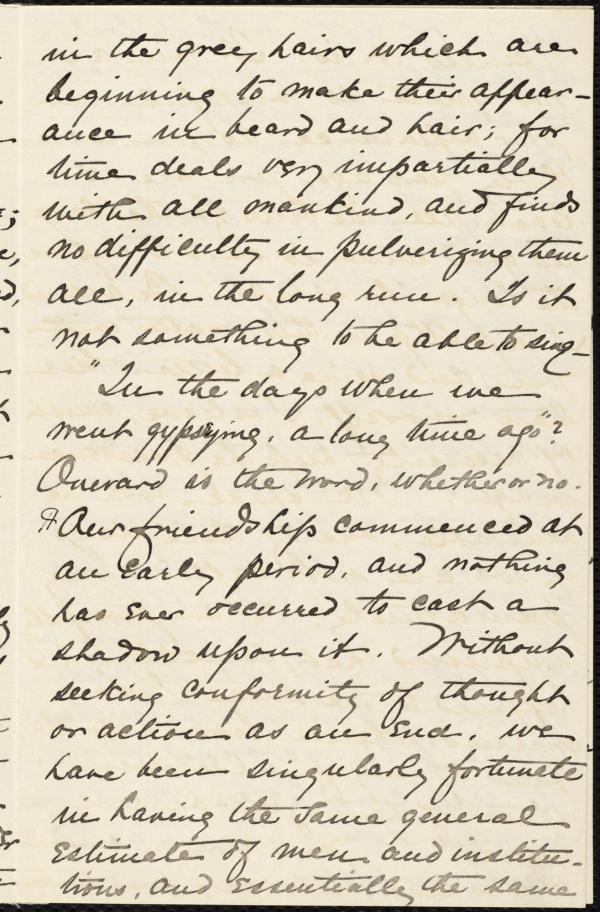 in the grey hairs which are
beginning to make their appear-
ance in beard and hair; for
time deals very impartially
with all mankind, and finds
no difficulty in pulverizing them
all, in the long run. Is it
not something to be able to sing-
"In the days when we
went gypsying, a long time ago"?
Onward is the word, whether or no.
Our friendship commenced at
an early period, and nothing
has ever occurred to cast a
shadow upon it. Without
seeking conformity of thought
or action as an end, we
have been singularly fortunate
in having the same general
estimate of men and institu-
tions, and essentially the same